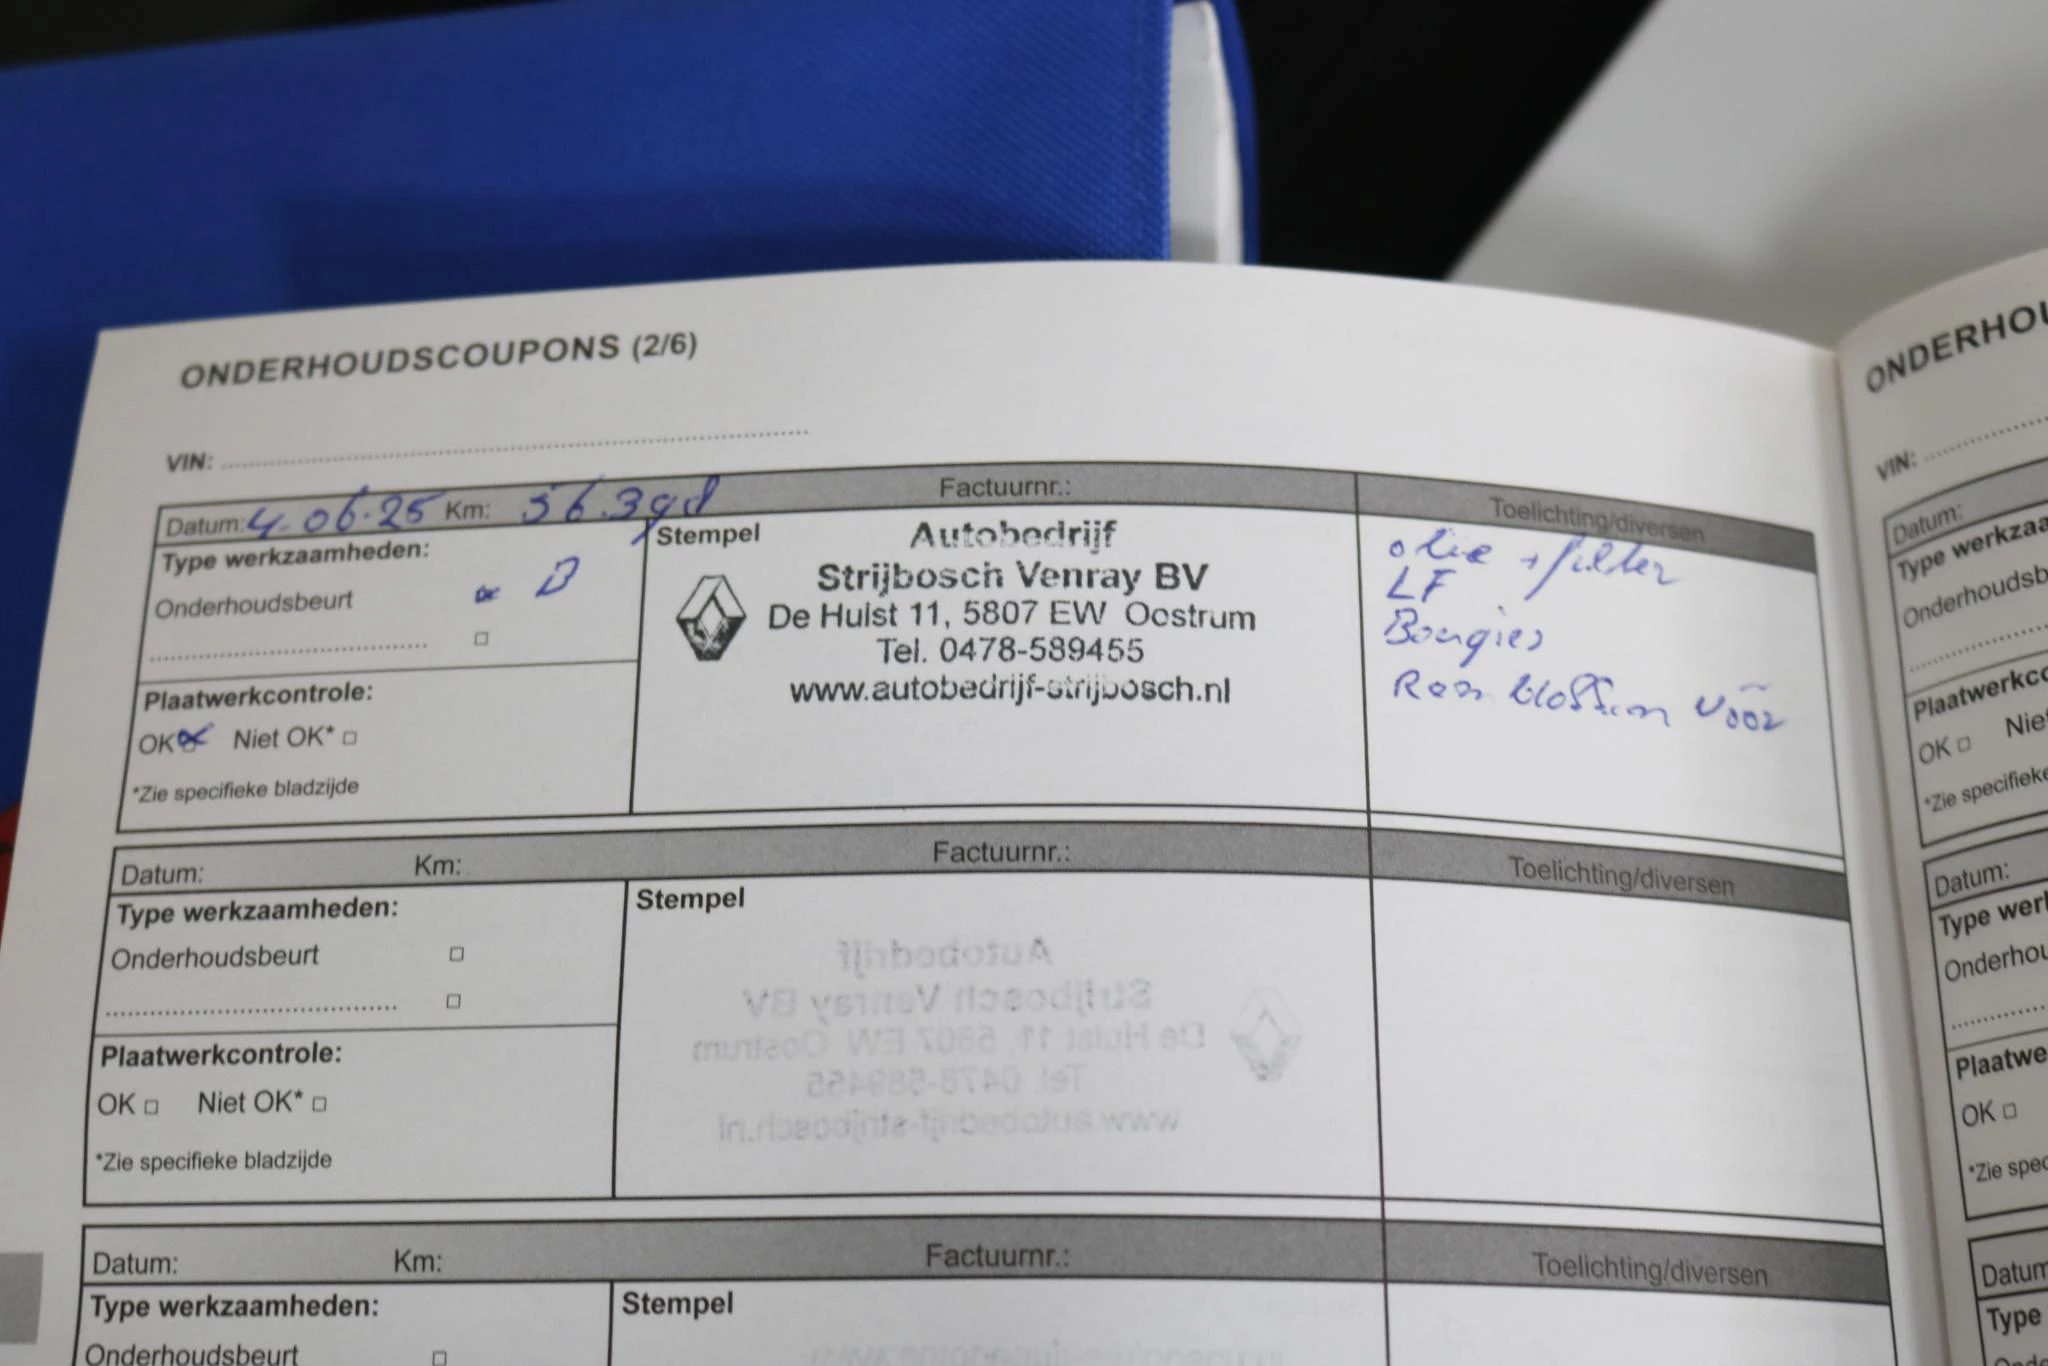 ONDERHOUDSCOUPONS (2/6)
VIN:
Datum: 4-06-25 Km: 56.3
Factuurnr.:
Toelichting/diversen
Type werkzaamheden:
Onderhoudsbeurt B
Plaatwerkcontrole:
OK Niet OK*
*Zie specifieke bladzijde
Stempel
Autobedrijf
Strijbosch Venray BV
De Hulst 11, 5807 EW Oostrum
Tel. 0478-589455
www.autobedrijf-strijbosch.nl
olie + filter
LF
Bougies
Remblokken voor
Datum: Km: Factuurnr.: Toelichting/diversen
Type werkzaamheden:
Onderhoudsbeurt
Plaatwerkcontrole:
OK Niet OK*
*Zie specifieke bladzijde
Stempel
Autobedrijf
Strijbosch Venray BV
De Hulst 11, 5807 EW Oostrum
Tel. 0478-589455
www.autobedrijf-strijbosch.nl
Datum: Km: Factuurnr.: Toelichting/diversen
Type werkzaamheden:
Onderhoudsbeurt
Stempel
ONDERHOU
VIN:
Datum:
Type werkzaa
Onderhoudsb
Plaatwerkco
OK Niet
*Zie specifieke
Datum:
Type werk
Onderhou
Plaatwe
OK
*Zie spec
Datum
Type